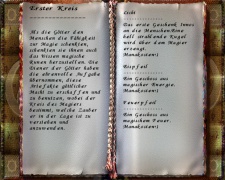 Erster Kreis
Als die Götter den
Menschen die Fähigkeit
zur Magie schenkten,
schenkten sie ihnen auch
das Wissen magische
Runen herzustellen. Die
Diener der Götter haben
die ehrenvolle Aufgabe
übernommen, diese
Artefakte göttlicher
Macht zu erschaffen und
zu benutzen, wobei der
Kreis des Magiers
bestimmt, welche Zauber
er in der Lage ist zu
verstehen und
anzuwenden.
Licht
Das erste Geschenk Innos
an die Menschen. Eine
hell strahlende Kugel
wird über dem Magier
erzeugt.
Manakosten:
Eispfeil
Ein Geschoss aus
magischer Energie.
Manakosten:
Feuerpfeil
Ein Geschoss aus
magischem Feuer.
Manakosten: